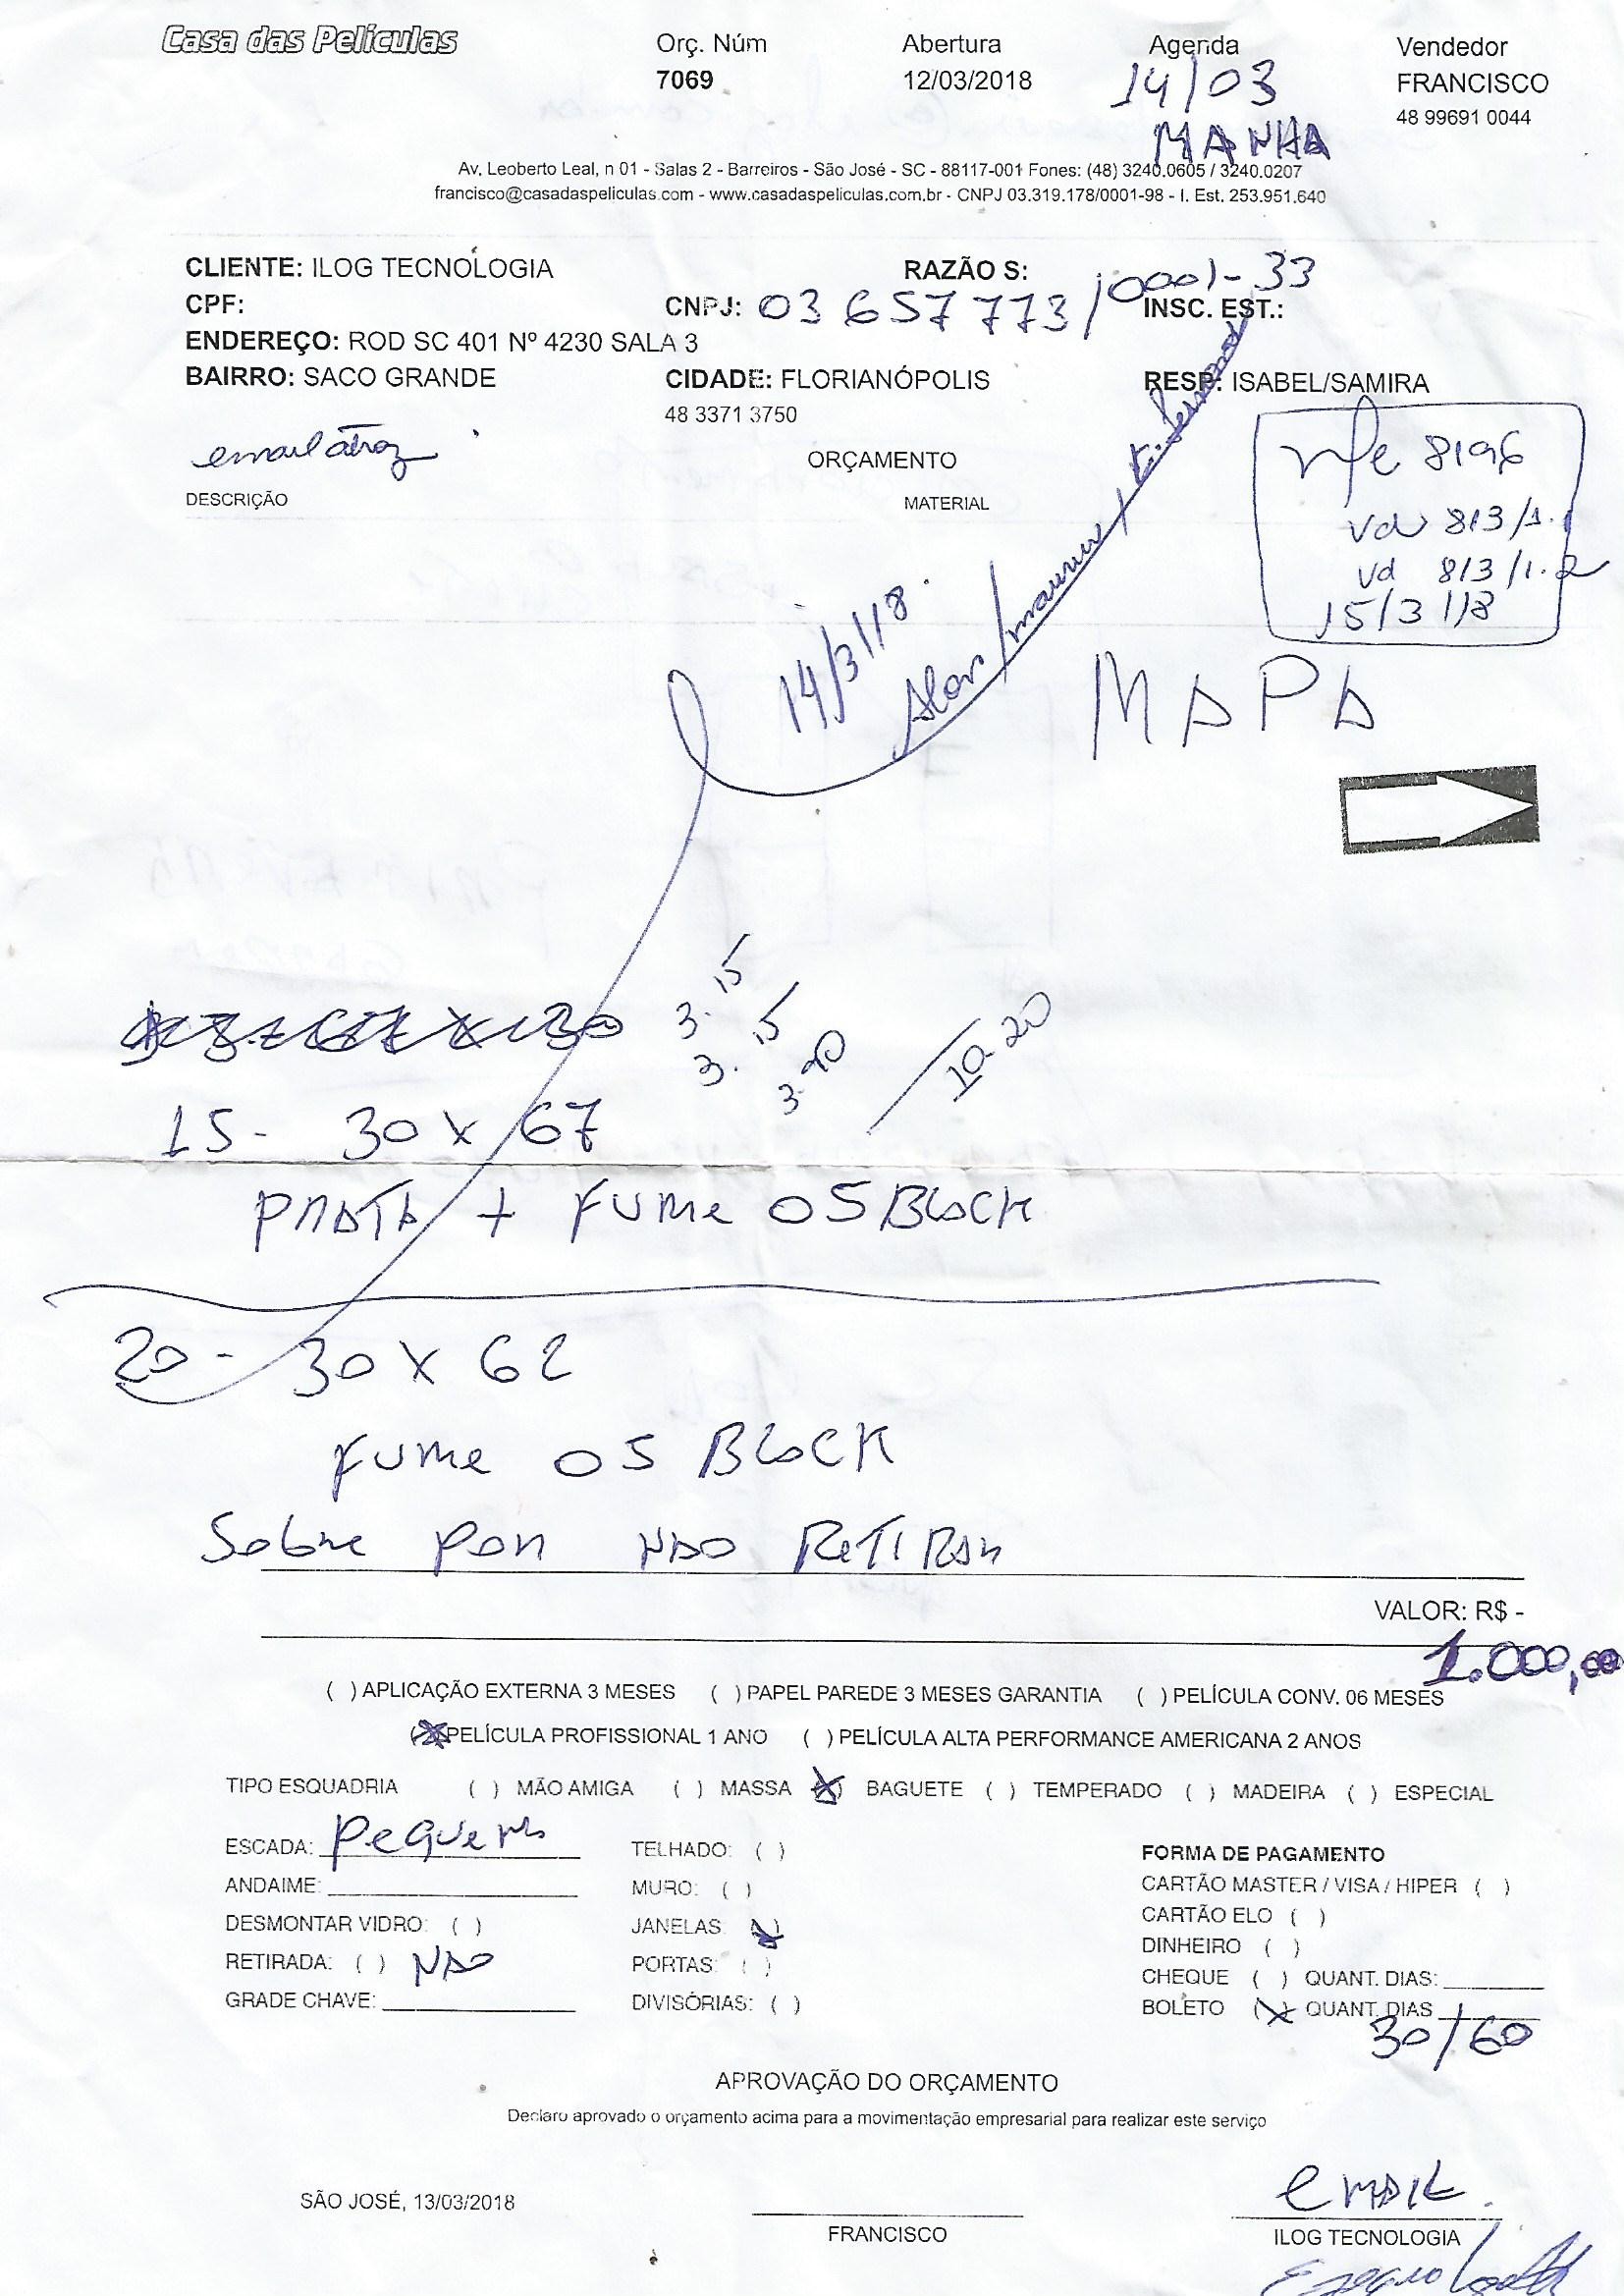 Casa das Películas
Orç. Núm Abertura Agenda Vendedor
7069 12/03/2018 14/03 FRANCISCO
MANHA 48 99691 0044
Av. Leoberto Leal, n 01 - Salas 2 - Barreiros - São José - SC - 88117-001 Fones: (48) 3240.0605 / 3240.0207
francisco@casadaspeliculas.com - www.casadaspeliculas.com.br - CNPJ 03.319.178/0001-98 - I. Est. 253.951.640
CLIENTE: ILOG TECNOLOGIA RAZÃO S:
CPF: CNPJ: 03 657 773/0001-33 INSC. EST.:
ENDEREÇO: ROD SC 401 Nº 4230 SALA 3
BAIRRO: SACO GRANDE CIDADE: FLORIANÓPOLIS RESP: ISABEL/SAMIRA
48 3371 3750
email atraz ORÇAMENTO
DESCRIÇÃO MATERIAL
nfe 8196
vd 813/1.1
vd 813/1.2
15/3/18
14/3/18.
MAPA
3.15
3.15
3.90
10.20
15- 30 x 67
PRATA + FUME 05 BLOCK
20- 30 X 62
FUME 05 BLOCK
Sobre por NAO RETIRAR
VALOR: R$ -
1.000,00
( ) APLICAÇÃO EXTERNA 3 MESES ( ) PAPEL PAREDE 3 MESES GARANTIA ( ) PELÍCULA CONV. 06 MESES
(X) PELÍCULA PROFISSIONAL 1 ANO ( ) PELÍCULA ALTA PERFORMANCE AMERICANA 2 ANOS
TIPO ESQUADRIA ( ) MÃO AMIGA ( ) MASSA (X) BAGUETE ( ) TEMPERADO ( ) MADEIRA ( ) ESPECIAL
ESCADA: Pequena TELHADO: ( ) FORMA DE PAGAMENTO
ANDAIME: MURO: ( ) CARTÃO MASTER / VISA / HIPER ( )
DESMONTAR VIDRO: ( ) JANELAS (X) CARTÃO ELO ( )
DINHEIRO ( )
RETIRADA: ( ) NAO PORTAS: ( ) CHEQUE ( ) QUANT. DIAS:
GRADE CHAVE: DIVISÓRIAS: ( ) BOLETO (X) QUANT. DIAS
30/60
APROVAÇÃO DO ORÇAMENTO
Declaro aprovado o orçamento acima para a movimentação empresarial para realizar este serviço
EMAIL.
SÃO JOSÉ, 13/03/2018
FRANCISCO ILOG TECNOLOGIA